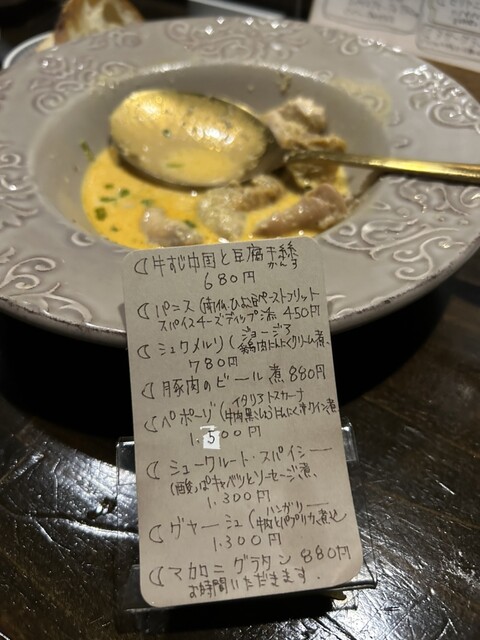 牛すじ中国と豆腐干絲
かんす
680円
パニス(南仏、ひよこ豆ペーストフリット
スパイスチーズディップ添 450円
シュクメルリ(ジョージア
鶏肉にんにくクリーム煮、
780円
豚肉のビール煮 880円
ペポーゾ(イタリアトスカーナ
牛肉黒こしょうにんにく赤ワイン煮
1.500円
シュークルート・スパイシー
(酸っぱキャベツとソーセージ煮、
1.300円
グヤーシュ(ハンガリー
牛肉とパプリカ煮込
1.300円
マカロニグラタン 880円
お時間いただきます.